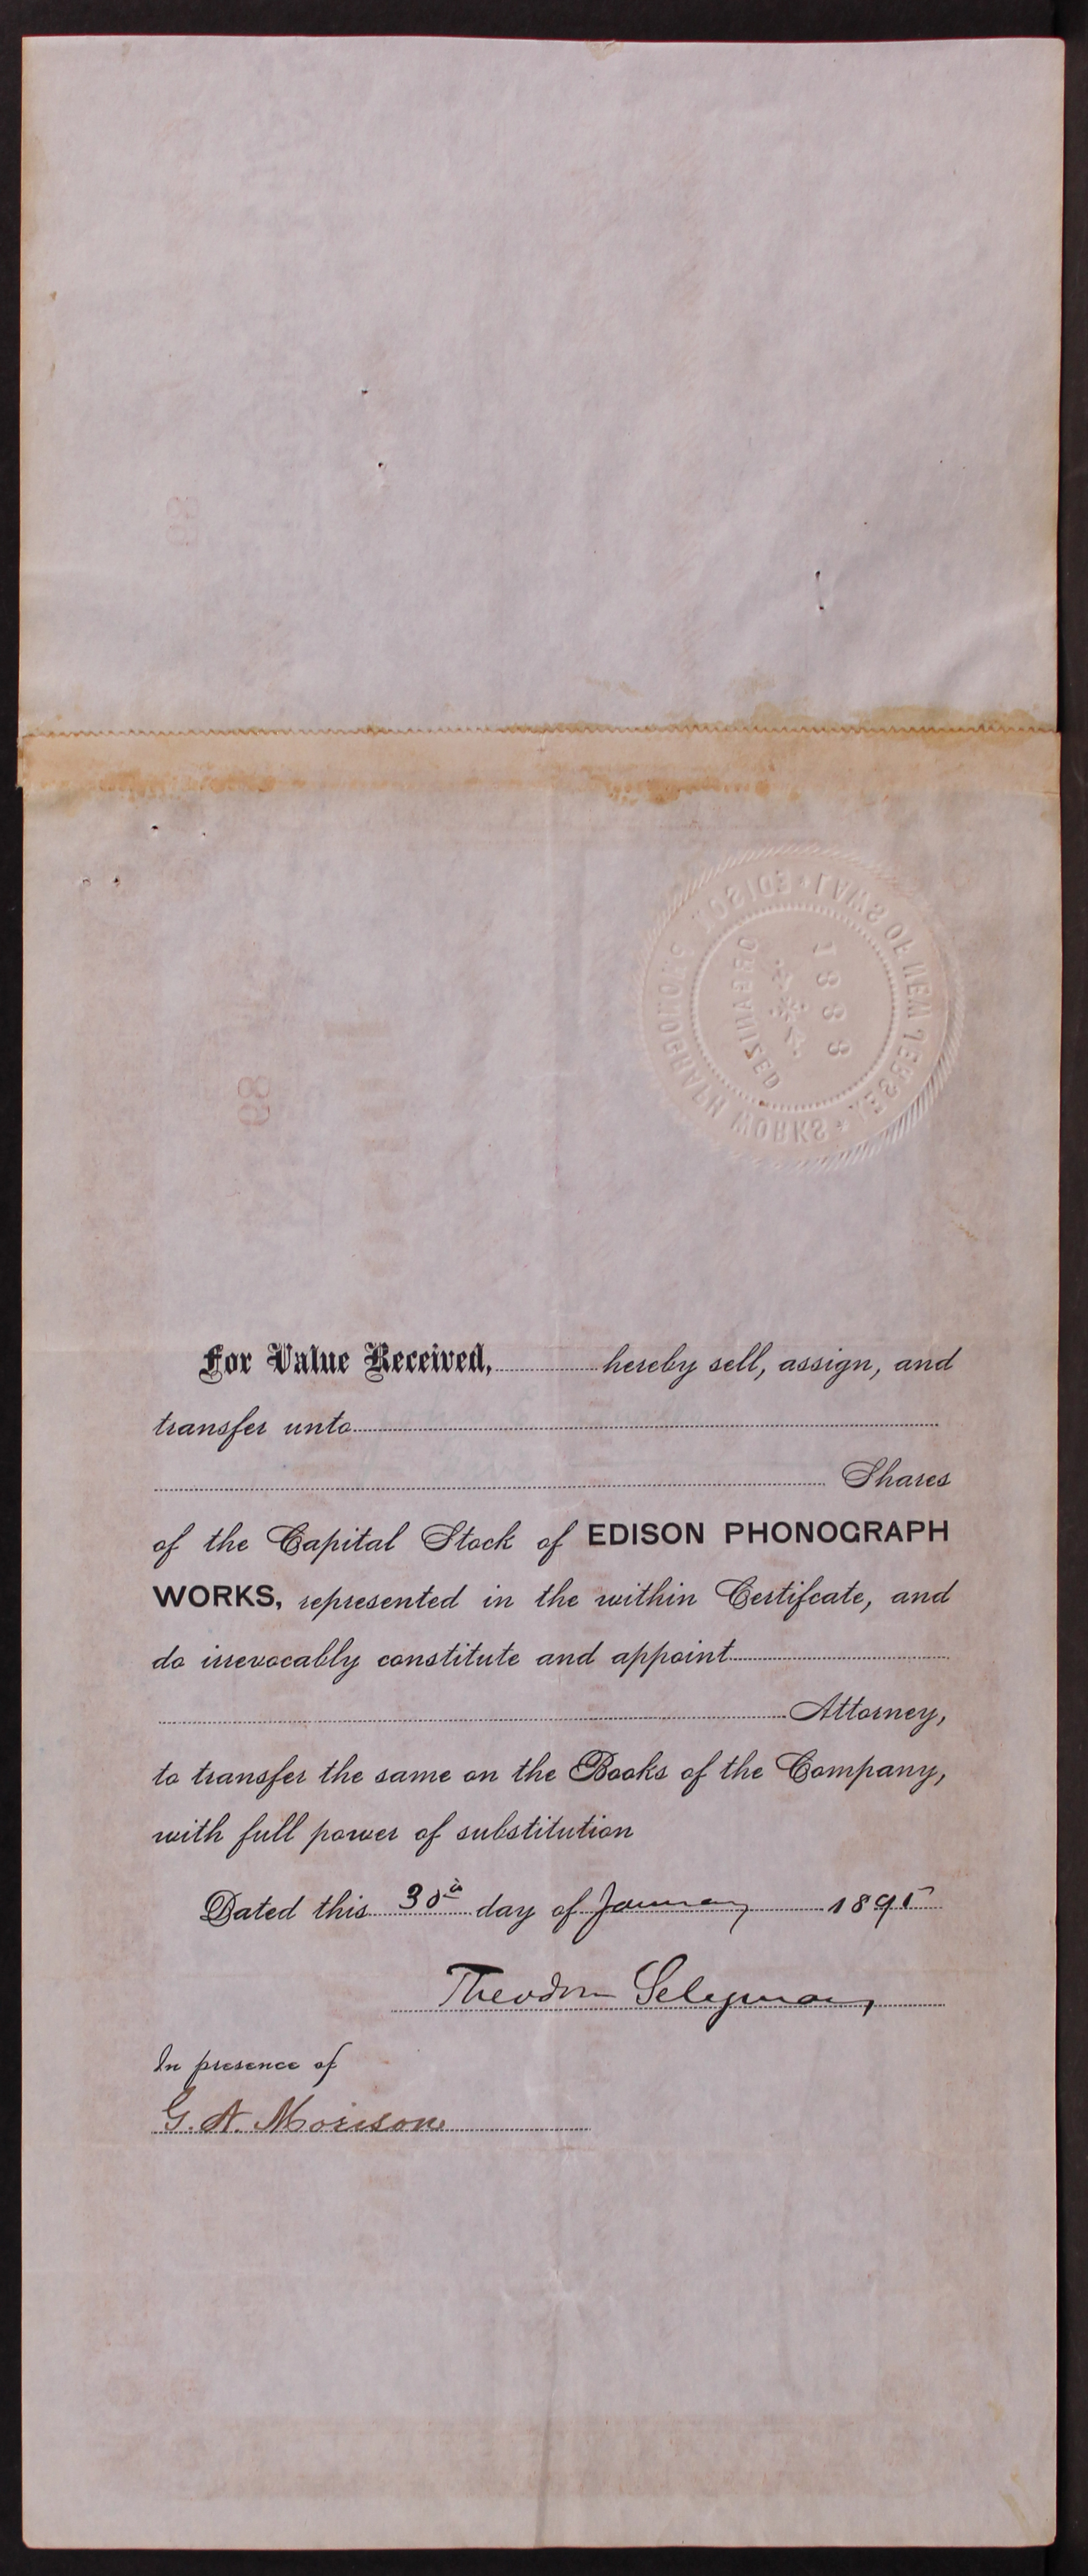 EDISON PHONOGRAPH WORKS * LAWS OF NEW JERSEY *
ORGANIZED
1888
For Value Received, hereby sell, assign, and
transfer unto
Shares
of the Capital Stock of EDISON PHONOGRAPH
WORKS, represented in the within Certifcate, and
do irrevocably constitute and appoint
Attorney,
to transfer the same on the Books of the Company,
with full power of substitution
Dated this 30th day of January 1895
Theodore Seligman
In presence of
G. A. Morison